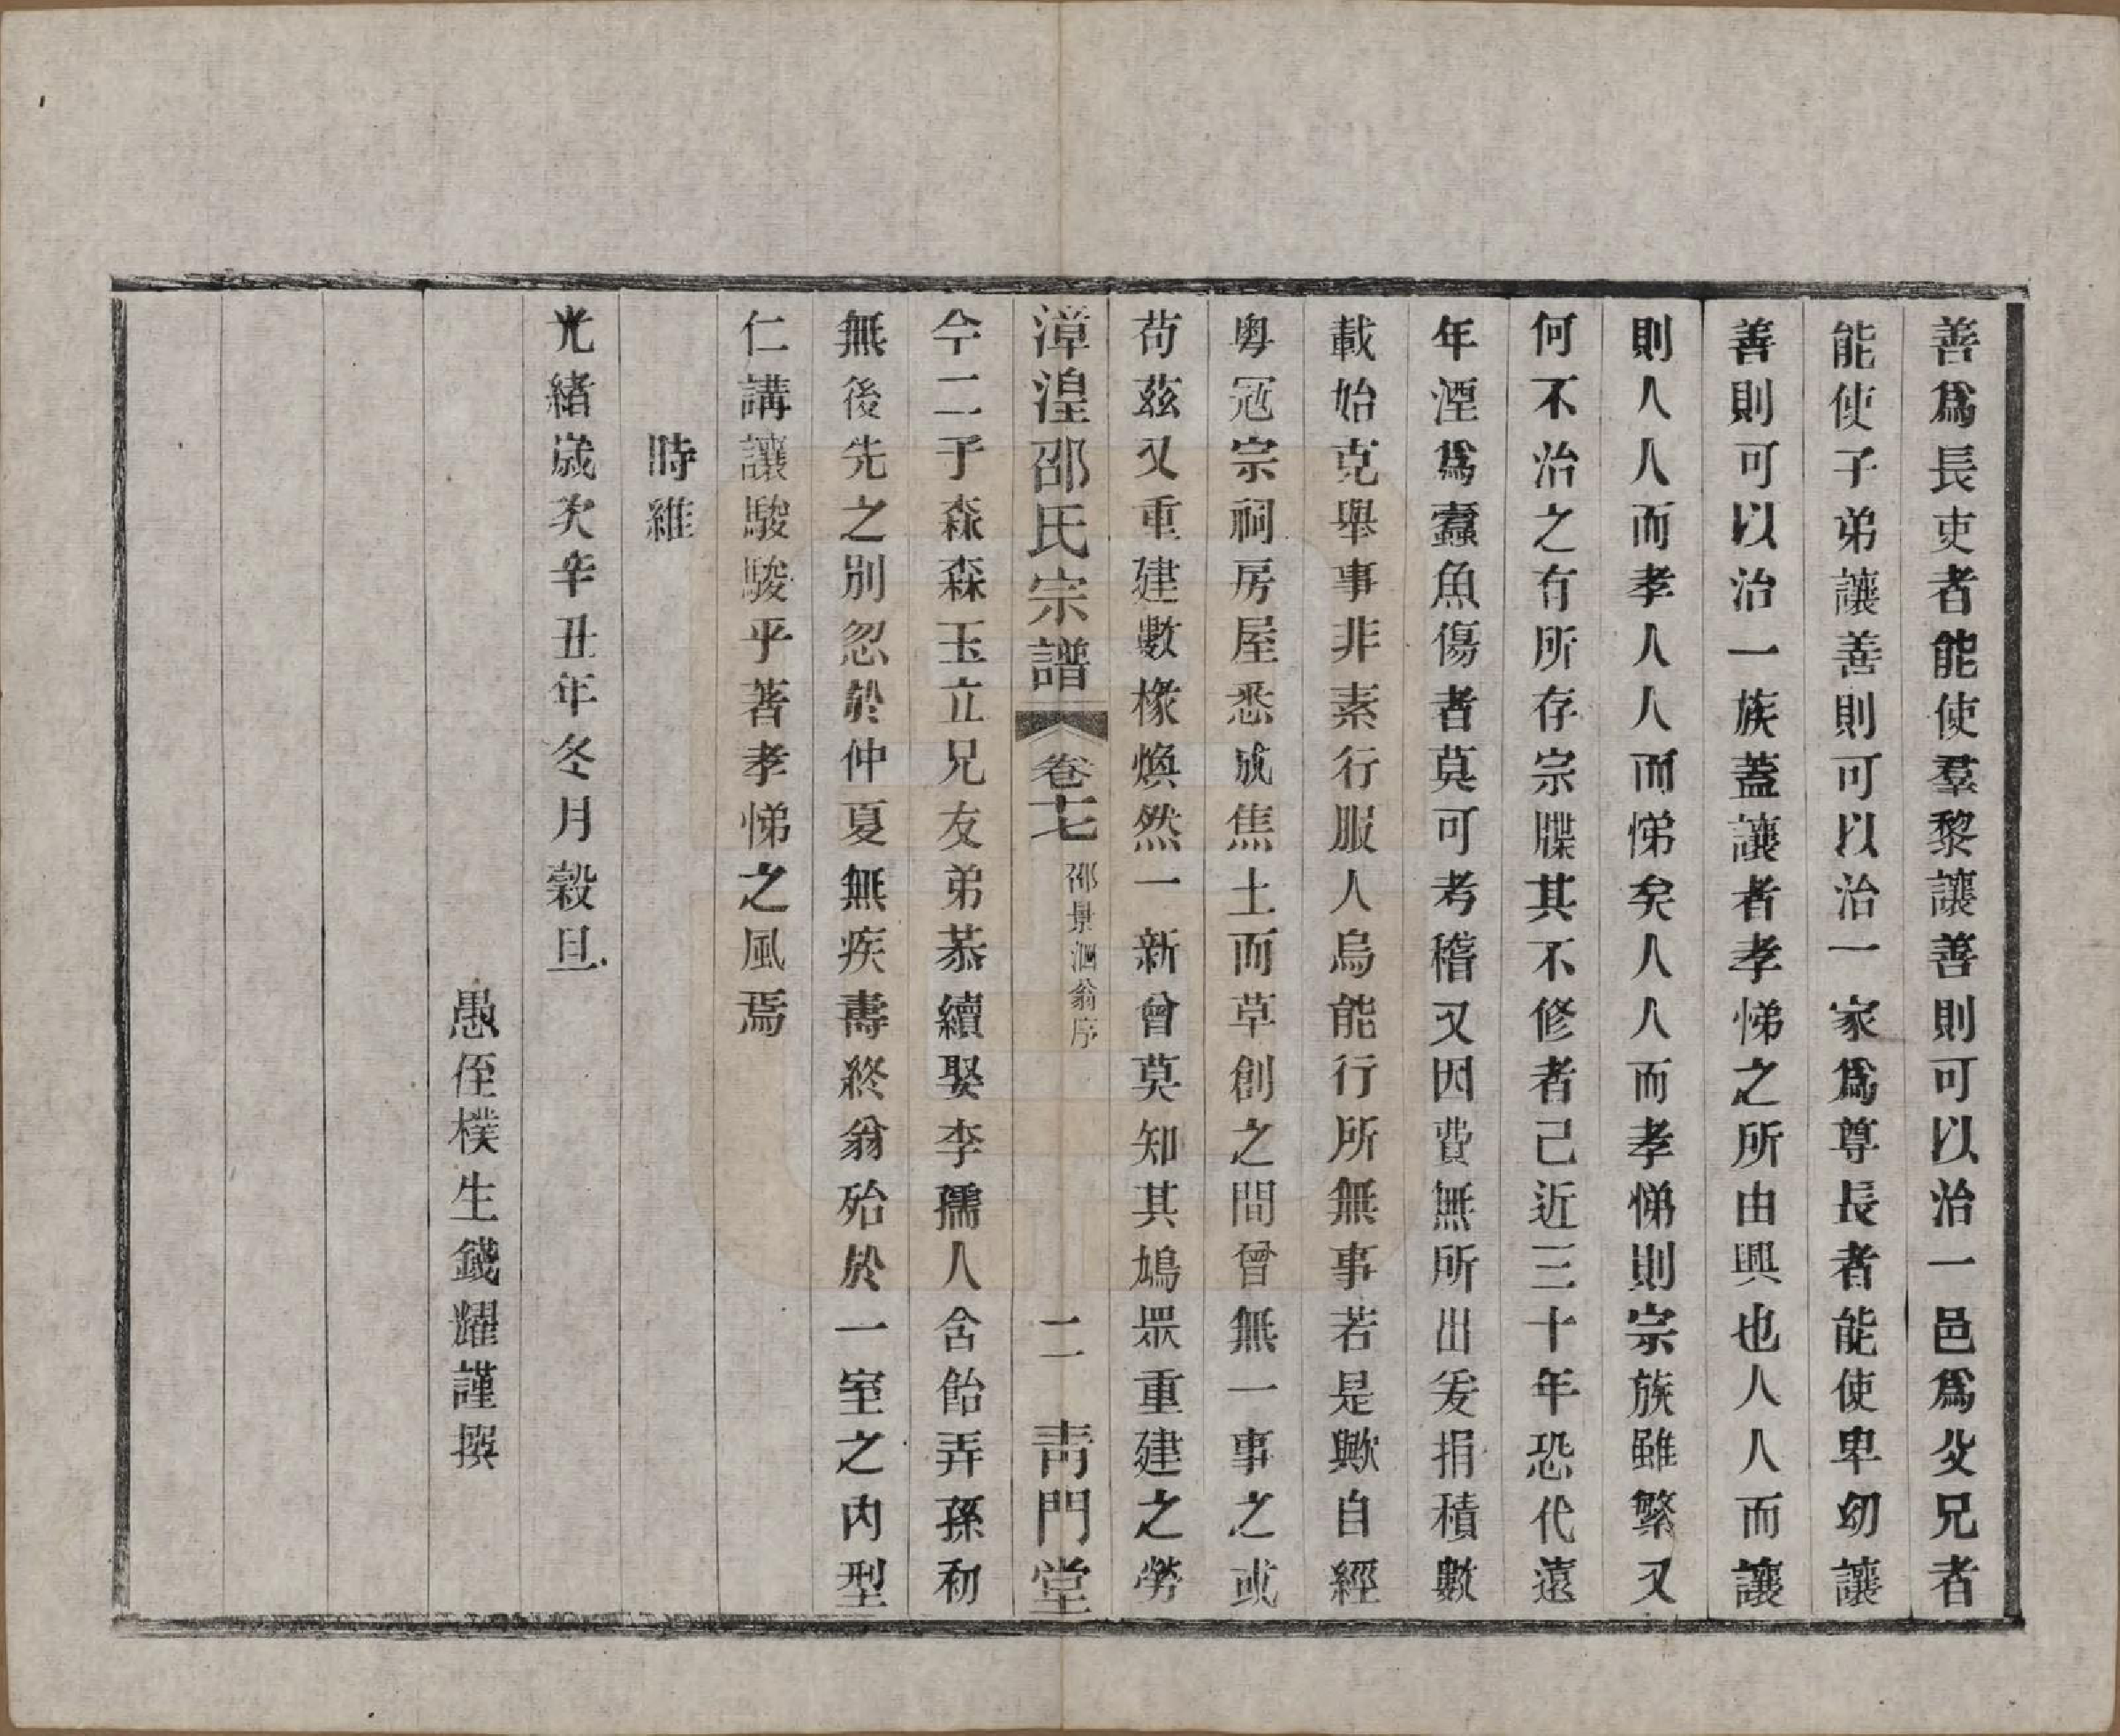 善爲長吏者能使羣黎讓善則可以治一邑爲父兄者
能使子弟讓善則可以治一家爲尊長者能使卑幼讓
善則可以治一族蓋讓者孝悌之所由興也人人而讓
則人人而孝人人而悌矣人人而孝悌則宗族雖繁又
何不治之有所存宗牒其不修者己近三十年恐代遠
年湮爲蠹魚傷者莫可考稽又因費無所出爰捐積數
載始克舉事非素行服人烏能行所無事若是歟自經
粤冦宗祠房屋悉成焦土而草創之間曾無一事之或
苟茲又重建數椽煥然一新曾莫知其鳩眾重建之勞
漳湟邵氏宗譜 卷十七 邵景泗翁序 二 靑門堂
今二子森森玉立兄友弟恭續娶李孺人含飴弄孫初
無後先之別忽於仲夏無疾壽終翁殆於一室之內型
仁講讓駿駿乎著孝悌之風焉
時維
光緒歲次辛丑年冬月穀旦
愚侄樸生錢耀謹撰